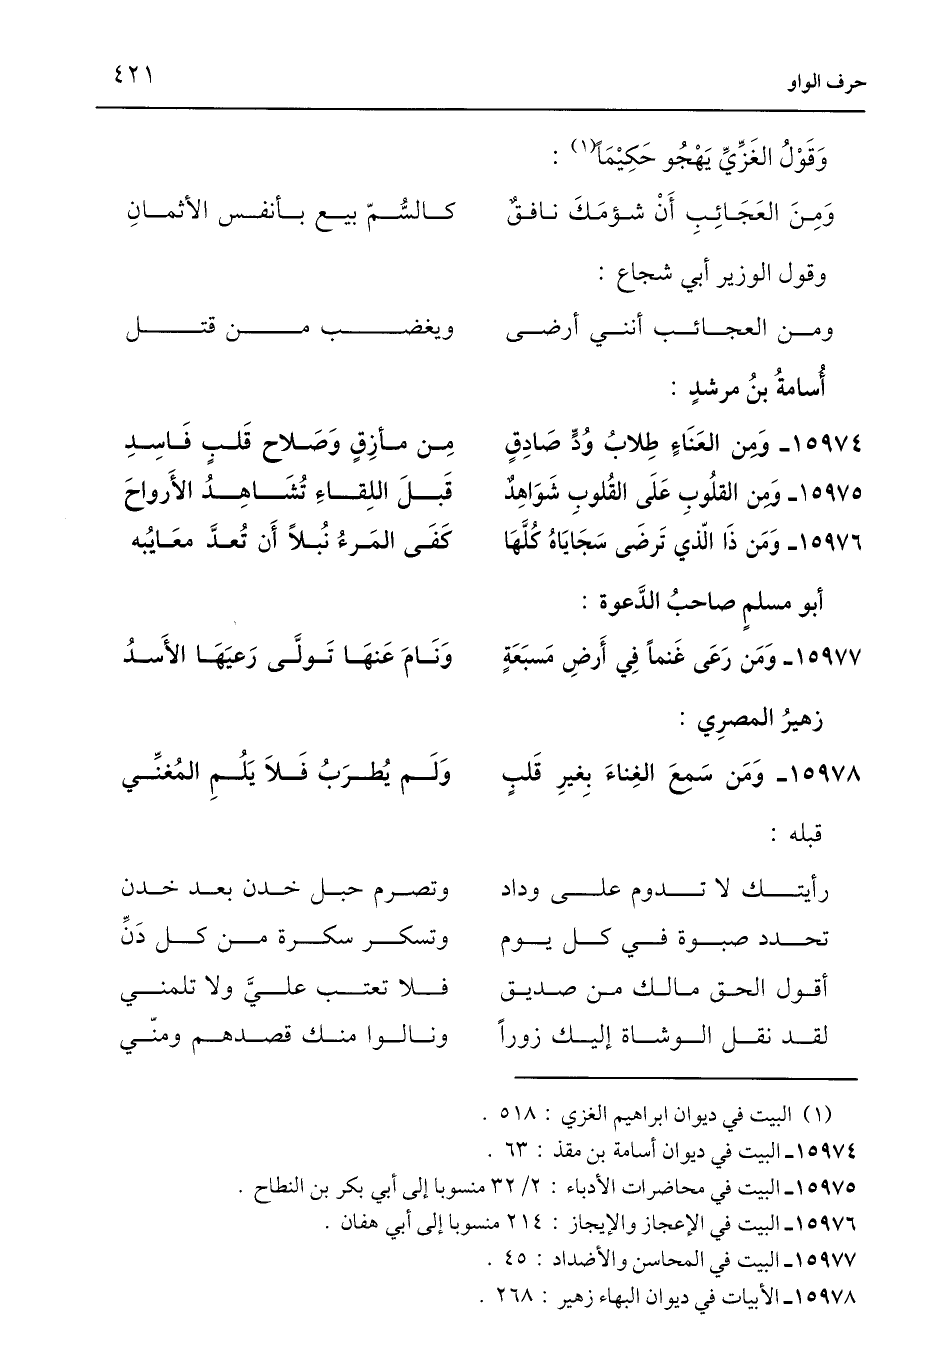 حرف الواو ٤٢١
وَقَوْلُ الغَزِّيِّ يَهْجُو حَكِيْمَاً(١) :
وَمِنَ العَجَائِبِ أَنْ شؤمَكَ نافقٌ كالسُّمّ بيع بأنفس الأثمانِ
وقول الوزير أبي شجاع :
ومن العجائب أنني أرضى ويغضب من قتل
أُسامةُ بنُ مرشدٍ :
١٥٩٧٤ـ وَمِن العَنَاءِ طِلابُ وُدٍّ صَادِقٍ مِن مأزِقٍ وَصَلاحِ قَلبٍ فَاسِدِ
١٥٩٧٥ـ وَمِن القلُوبِ عَلَى القُلوبِ شَوَاهِدٌ قَبلَ اللِقاءِ تُشَاهِدُ الأَرواحَ
١٥٩٧٦ـ وَمَن ذَا الّذي تَرضَى سَجَايَاهُ كُلَّهَا كَفَى المَرءُ نُبلاً أَن تُعدَّ معَايبُه
أبو مسلمٍ صاحبُ الدَّعوة :
١٥٩٧٧ـ وَمَن رَعَى غَنماً فِي أَرضِ مَسبَعَةٍ وَنَامَ عَنهَا تَولَّى رَعيَهَا الأَسدُ
زهيرُ المصرِي :
١٥٩٧٨ـ وَمَن سَمِعَ الغِناءَ بِغيرِ قَلبٍ وَلَم يُطرَبُ فَلاَ يَلُمِ المُغنِّي
قبله :
رأيتك لا تدوم على وداد وتصرم حبل خدن بعد خدن
تحدد صبوة في كل يوم وتسكر سكرة من كل دَنِّ
أقول الحق مالك من صديق فلا تعتب عليَّ ولا تلمني
لقد نقل الوشاة إليك زوراً ونالوا منك قصدهم ومنّي
(١) البيت في ديوان ابراهيم الغزي : ٥١٨ .
١٥٩٧٤ـ البيت في ديوان أسامة بن مقذ : ٦٣ .
١٥٩٧٥ـ البيت في محاضرات الأدباء : ٢/ ٣٢ منسوبا إلى أبي بكر بن النطاح .
١٥٩٧٦ـ البيت في الإعجاز والإيجاز : ٢١٤ منسوبا إلى أبي هفان .
١٥٩٧٧ـ البيت في المحاسن والأضداد : ٤٥ .
١٥٩٧٨ـ الأبيات في ديوان البهاء زهير : ٢٦٨ .